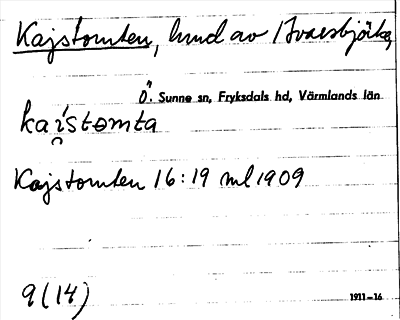 Kajstomten, hmd av Ivarsbjörke,
Ö. Sunne sn, Fryksdals hd, Värmlands län
kaístomta
Kajstomten 16:19 ml 1909
9(14)
1911–16